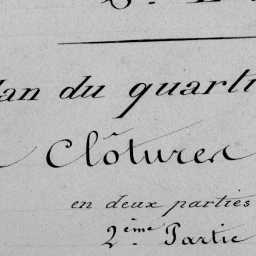 lan du quarti
Clôturer
en deux parties
2.ème Partie